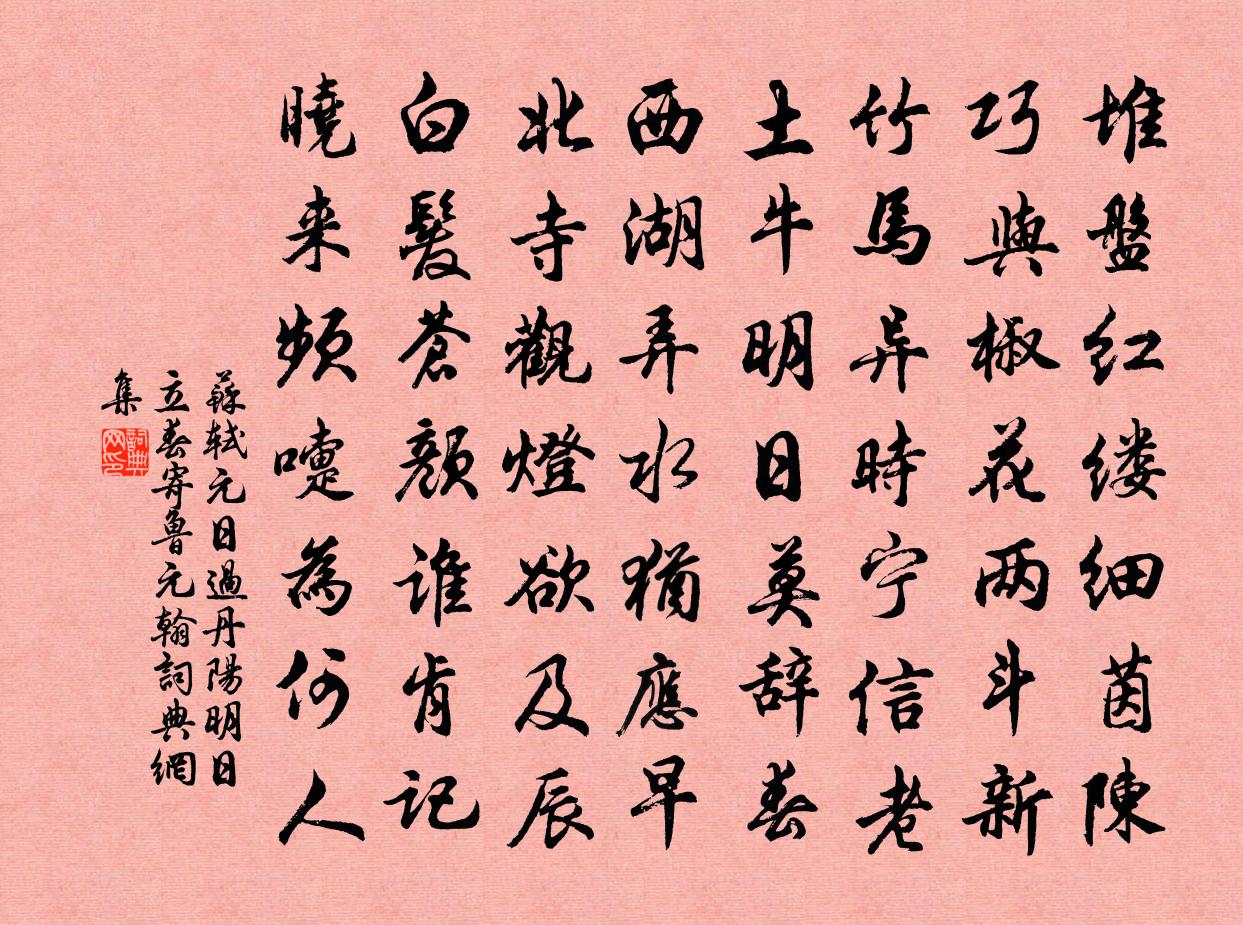 堆盤红缕细茵陳
巧與椒花两斗新
竹馬异時宁信老
土牛明日莫辞春
西湖弄水猶應早
北寺觀燈欲及辰
白髮蒼顔谁肯记
曉来频嚏為何人
蘇軾元日過丹陽明日
立春寄魯元翰詞典網
集
詞典
网印